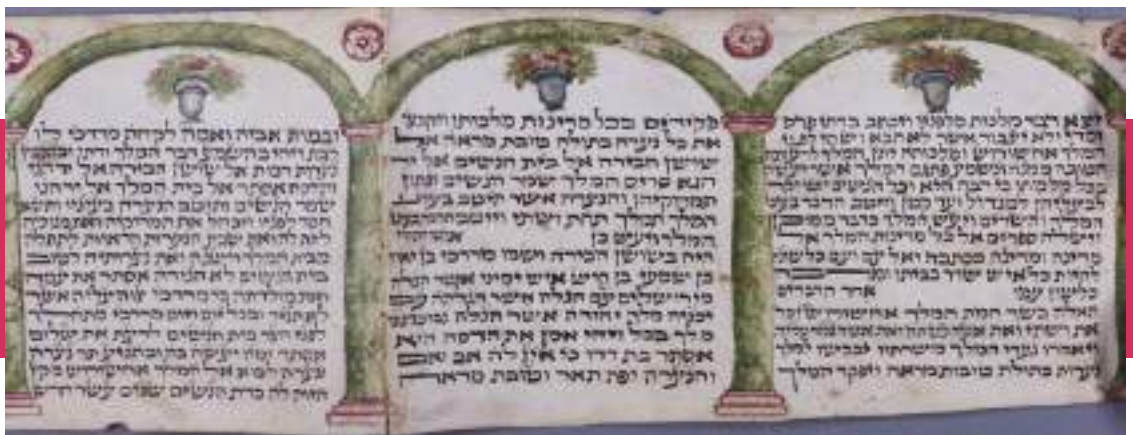 יצא דבר מלכות מלפניו ויכתב בדתי פרס
ומדי ולא יעבור אשר לא תבוא ושתי לפני
המלך אחשורוש ומלכותה יתן המלך לרעותה
הטובה ממנה ונשמע פתגם המלך אשר יעשה
בכל מלכותו כי רבה היא וכל הנשים יתנו יקר
לבעליהן למגדול ועד קטן וייטב הדבר בעיני
המלך והשרים ויעש המלך כדבר ממוכן
וישלח ספרים אל כל מדינות המלך אל
מדינה ומדינה ככתבה ואל עם ועם כלשונו
להיות כל איש שרר בביתו ומדבר
כלשון עמו אחר הדברים
האלה כשך חמת המלך אחשורוש זכר
את ושתי ואת אשר עשתה ואת אשר נגזר עליה
ויאמרו נערי המלך משרתיו יבקשו למלך
נערות בתולות טובות מראה ויפקד המלך
פקידים בכל מדינות מלכותו ויקבצו
את כל נערה בתולה טובת מראה אל
שושן הבירה אל בית הנשים אל יד
הגא סריס המלך שמר הנשים ונתון
תמרוקיהן והנערה אשר תיטב בעיני
המלך תמלך תחת ושתי וייטב הדבר בעיני
המלך ויעש כן איש יהודי
היה בשושן הבירה ושמו מרדכי בן יאיר
בן שמעי בן קיש איש ימיני אשר הגלה
מירושלים עם הגלה אשר הגלתה עם
יכניה מלך יהודה אשר הגלה נבוכדנצר
מלך בבל ויהי אמן את הדסה היא
אסתר בת דדו כי אין לה אב ואם
והנערה יפת תאר וטובת מראה
ובמות אביה ואמה לקחה מרדכי לו
לבת ויהי בהשמע דבר המלך ודתו ובהקבץ
נערות רבות אל שושן הבירה אל יד הגי
ותלקח אסתר אל בית המלך אל יד הגי
שמר הנשים ותיטב הנערה בעיניו ותשא
חסד לפניו ויבהל את תמרוקיה ואת מנותה
לתת לה ואת שבע הנערות הראיות לתת לה
מבית המלך וישנה ואת נערותיה לטוב
בית הנשים לא הגידה אסתר את עמה
ואת מולדתה כי מרדכי צוה עליה אשר
לא תגיד ובכל יום ויום מרדכי מתהלך
לפני חצר בית הנשים לדעת את שלום
אסתר ומה יעשה בה ובהגיע תר נערה
ונערה לבוא אל המלך אחשורוש מקץ
היות לה כדת הנשים שנים עשר חדש